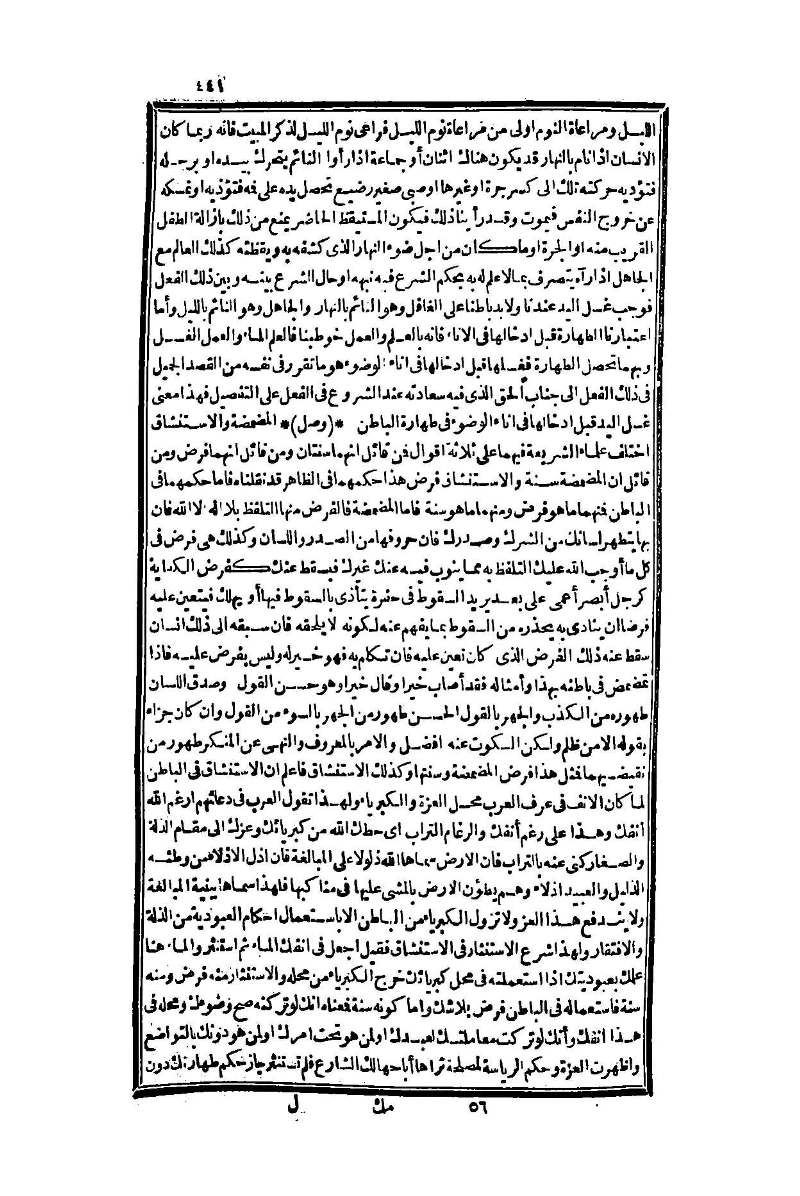 ٤٤١
الليل ومراعاة النوم اولى من مراعاة نوم الليل فراعى نوم الليل لذكر المبيت فانه ربما كان
الانسان اذا نام بالنهار قد يكون هناك اثنان أو جماعة اذا رأوا النائم يتحرك بيده او برجله
فتؤديه حركته تلك الى كسر جرة او غيرها او صبي صغير رضيع تحصل يده على فمه فتؤذيه او تمسكه
عن خروج النفس فيموت وقد رأينا ذلك فيكون المستيقظ الحاضر يمنع من ذلك بازالة الطفل
القريب منه او الجرة او ما كان من اجل ضوء النهار الذى كشفه به ويقظته كذلك العالم مع
الجاهل اذا رآه يتصرف بما لا علم له به بحكم الشرع فيه نبهه او حال الشرع بينه وبين ذلك الفعل
فوجب غسل اليد عندنا ولا بد باطنا على الغافل وهو النائم بالنهار والجاهل وهو النائم بالليل وأما
اعتبارنا الطهارة قبل ادخالها فى الاناء فانه بالعلم والعمل خوطبنا فالعلم الماء والعمل الغسل
وبهما تحصل الطهارة فغسلها قبل ادخالها فى اناء الوضوء هو ما تقرر فى نفسه من القصد الجميل
فى ذلك الفعل الى جناب الحق الذى فيه سعادته عند الشروع فى الفعل على التفصيل فهذا معنى
غسل اليد قبل ادخالها فى اناء الوضوء فى طهارة الباطن *(وصل)* المضمضة والاستنشاق
اختلف علماء الشريعة فيهما على ثلاثة اقوال فمن قائل انهما سنتان ومن قائل انهما فرض ومن
قائل ان المضمضة سنة والاستنشاق فرض هذا حكمهما فى الظاهر قد نقلناه فاما حكمهما فى
الباطن فمنهما ما هو فرض ومنهما ما هو سنة فاما المضمضة فالفرض منها التلفظ بلا اله الا الله فان
بها يتطهر لسانك من الشرك وصدرك فان حروفها من الصدر واللسان وكذلك هى فرض فى
كل ما أوجب الله عليك التلفظ به مما ينوب فيه عنك غيرك فيسقط عنك كفرض الكفاية
كرجل أبصر أعمى على بعد يريد السقوط فى حفرة يتأذى بالسقوط فيها أو يهلك فيتعين عليه
فرضا ان ينادى به يحذره من السقوط بما يفهم عنه لكونه لا يلحقه فان سبقه الى ذلك انسان
سقط عنه ذلك الفرض الذى كان تعين عليه فان تكلم به فهو خير له وليس بفرض عليه فاذا
تمضمض فى باطنه بهذا وأمثاله فقد أصاب خيرا وقال خيرا وهو حسن القول وصدق اللسان
طهوره من الكذب والجهر بالقول الحسن طهور من الجهر بالسوء من القول وان كان جزاء
بقوله الا من ظلم ولكن السكوت عنه افضل والامر بالمعروف والنهى عن المنكر طهور من
نقيضيهما فمثل هذا فرض المضمضة وسنتها وكذلك الاستنشاق فاعلم ان الاستنشاق فى الباطن
لما كان الانف فى عرف العرب محل العزة والكبرياء ولهذا تقول العرب فى دعائهم ارغم الله
أنفك وهذا على رغم أنفك والرغام التراب اى حطك الله من كبريائك وعزك الى مقام الذلة
والصغار كنى عنه بالتراب فان الارض سماها الله ذلولا على المبالغة فان اذل الاذلاء من وطئه
الذليل والعبيد اذلاء وهم يطؤن الارض بالمشى عليها فى مناكبها فلهذا سماها ببنية المبالغة
ولا يندفع هذا العز ولا تزول الكبرياء من الباطن الا باستعمال احكام العبودية من الذلة
والافتقار ولهذا شرع الاستنثار فى الاستنشاق فقيل اجعل فى انفك الماء ثم استنثر والماء هنا
علمك بعبوديتك اذا استعملته فى محل كبريائك خرج الكبرياء من محله والاستنثار منه فرض ومنه
سنة فاستعماله فى الباطن فرض بلا شك واما كونه سنة فمعناه انك لو تركته صح وضوءك ومحله فى
هذا انفك وأنك لو تركت معاملتك لعبدك او لمن هو تحت امرك او لمن هو دونك بالتواضع
واظهرت العزة وحكم الرياسة لمصلحة تراها أباحها لك الشارع فلم تستنثر جاز حكم طهارتك دون
٥٦ مك ل